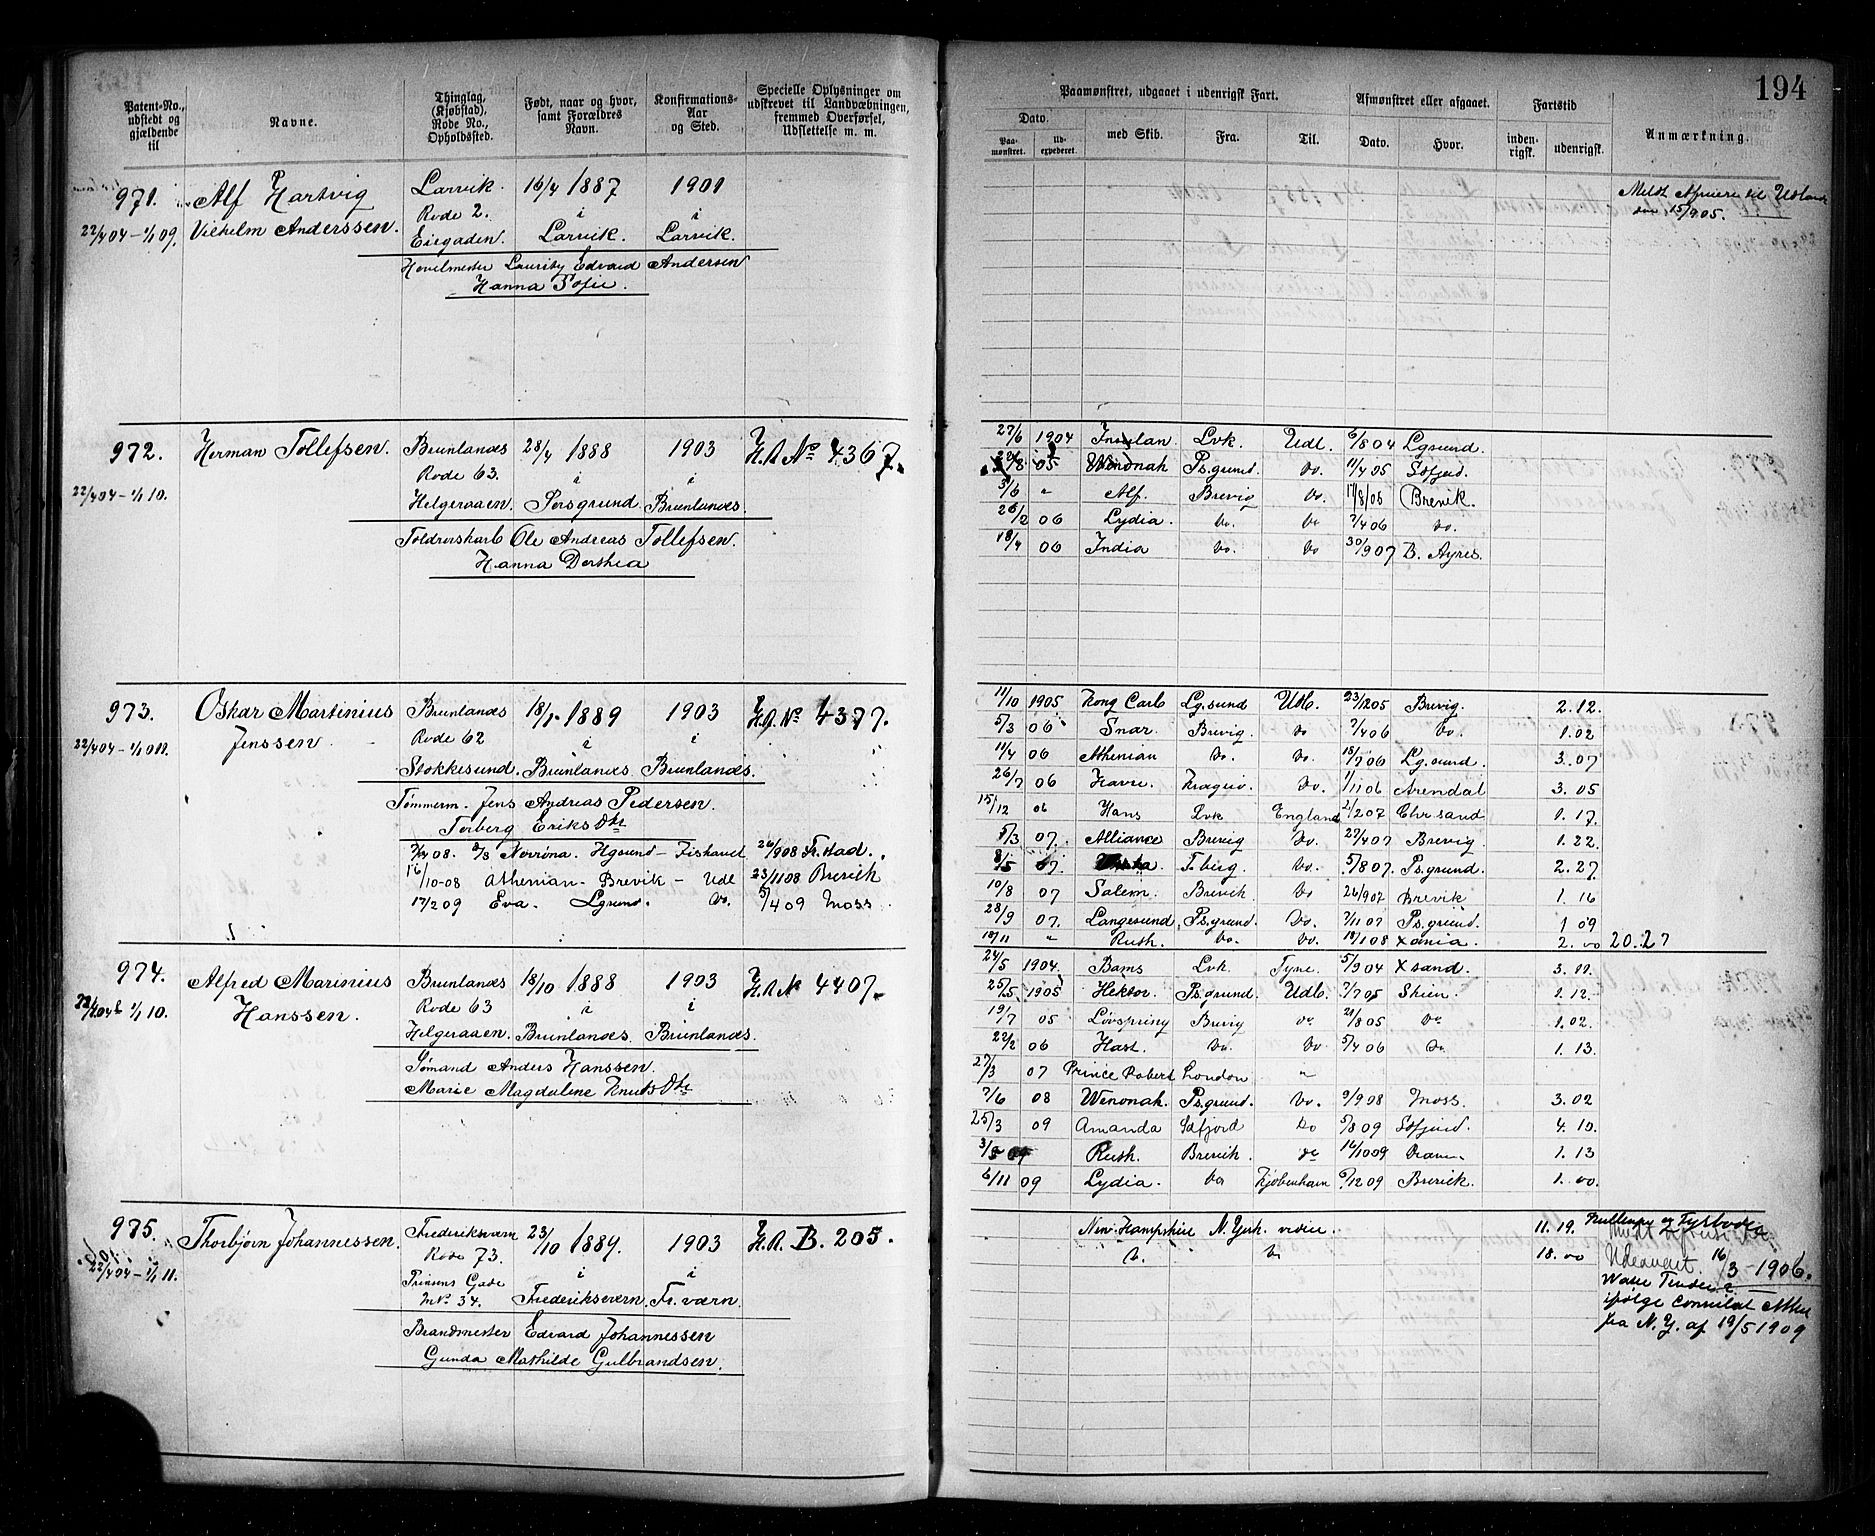 194
Patent-No., udstedt og gjældende til
Navne.
Thinglag, (Kjøbstad), Rode No., Opholdssted.
Født, naar og hvor, samt Forældres Navn.
Konfirmations-Aar og Sted.
Specielle Oplysninger om udskrevet til Landværbningen, fremmed Overførsel, Udslettelse m. m.
Paamønstret, udgaaet i udenrigsk Fart.
Afmønstret eller afgaaet.
Fartstid
Anmærkning.
Dato.
Paa-mønstret.
Ud-expederet.
med Skib.
Fra.
Til.
Dato.
Hvor.
inden-rigsk.
udenrigsk.
971. Alf Hartvig Larvik. 16/4 1887 1901
Rode 2. i i
22/4 04 - 1/1 09. Vilhelm Anderssen. Larvik. Larvik.
Lauritz Edvard Andersen
Hanna Sofie.
15/9 05.
972. Herman Tollefsen. Brunlanæs 28/4 1888 1903 No 4367.
Rode 63. i i
22/4 04 - 1/1 10. Helgeraaen. Porsgrund. Brunlanæs.
Ole Andreas Tollefsen.
Hanna Dorthea
27/6 1904 Lvk. Udl. 6/8 04 Lgsund.
05 Winonah Ps.grund. Do. 11/4 05
3/6 " Alf. Brevig Do. 17/8/05 Brevik.
26/2 06 Lydia. Do. Do 7/4 06 Do.
18/4 06 India Do. Do 30/9 07 B. Ayres.
973. Oskar Martinius Brunlanæs 18/1 1889 1903 No 4377.
Jenssen. Rode 62 i i
22/4 04 Stokkesund. Brunlanæs Brunlanæs.
Tømmerm. Jens Andreas Pedersen.
Torberg Eriks Dtr
08. Norrøna. Hgsund - Fiskeriet 26/9 08 Fr.stad.
16/10-08 Athenian - Brevik - Udl 23/11 08 Brevik
17/2 09 Eva. Lgsund. Do. 5/4 09 Moss
11/10 1905 Kong Carl Lg.sund Udl. 23/12 05 Brevig. 2.12.
5/3 06 Snar Brevig. Do 7/4 06 Do. 1.02
11/4 06 Athenian Do. Do. 18/7 06 Lg.sund. 3.07
26/7 06 Havre. Kragerø. Do. 1/11 06 Arendal 3.05
15/12 06 Hans Lvk England 2/2 07 Chrsand 1.17.
5/3 07. Alliance Brevig Do. 27/4 07 Brevig. 1.22.
8/5 07 T.berg. Do. 5/8 07. Ps.grund. 2.27
10/8 07 Salem. Brevik Do 26/9 07 Brevik 1.16
28/9 07. Langesund, Ps.grund. Do. 7/11 07 Ps.grund. 1 09
18/11 " Ruth. Do. Do. 18/1 08 Xania. 2.00 20.27
974. Alfred Marinius Brunlanæs 18/10 1888 1903 No 4407.
Hanssen. Rode 63 i i
22/4 04 1/1 10. Helgeraaen. Brunlanæs. Brunlanæs.
Sømand Anders Hanssen.
Marie Magdalene Knuds Dtr
24/5 1904. Bams Lvk. Tyne. 5/9 04 Xsand. 3.11.
25/5 1905 Hektor. Ps.grund. Udl. 7/7 05 Skien. 1.12.
19/7 05 Løvspring Brevig Do 21/8 05 Do 1.02.
22/2 06 Hast. Do. Do 5/4 06 Do 1.13.
27/3 07 Prince Robert London "
7/6 08 Winonah. Ps.grund. Do. 9/9 08 Moss. 3.02
25/3 09 Amanda Do 5/8 09 4.10.
Ruth. Brevik. Do 16/10 09 1.13
6/11 09 Lydia. Do Kjøbenhavn 6/12 09 Brevik. 1.00.
975. Thorbjørn Johannessen. Frederiksværn 23/10 1889. 1903 B. 205.
Rode 73. i i
22/4 04 - 1/1 11. Prinsens Gade
No. 34. Frederiksværn. Fr.værn.
Brandmester Edvard Johannessen
Gunda Mathilde Gulbrandsen.
New-Hampshire N. York. 11.19.
Do. Do 18.00
16/3 - 1906.
ifølge Consulat
fra N. Y. af 19/5 1909